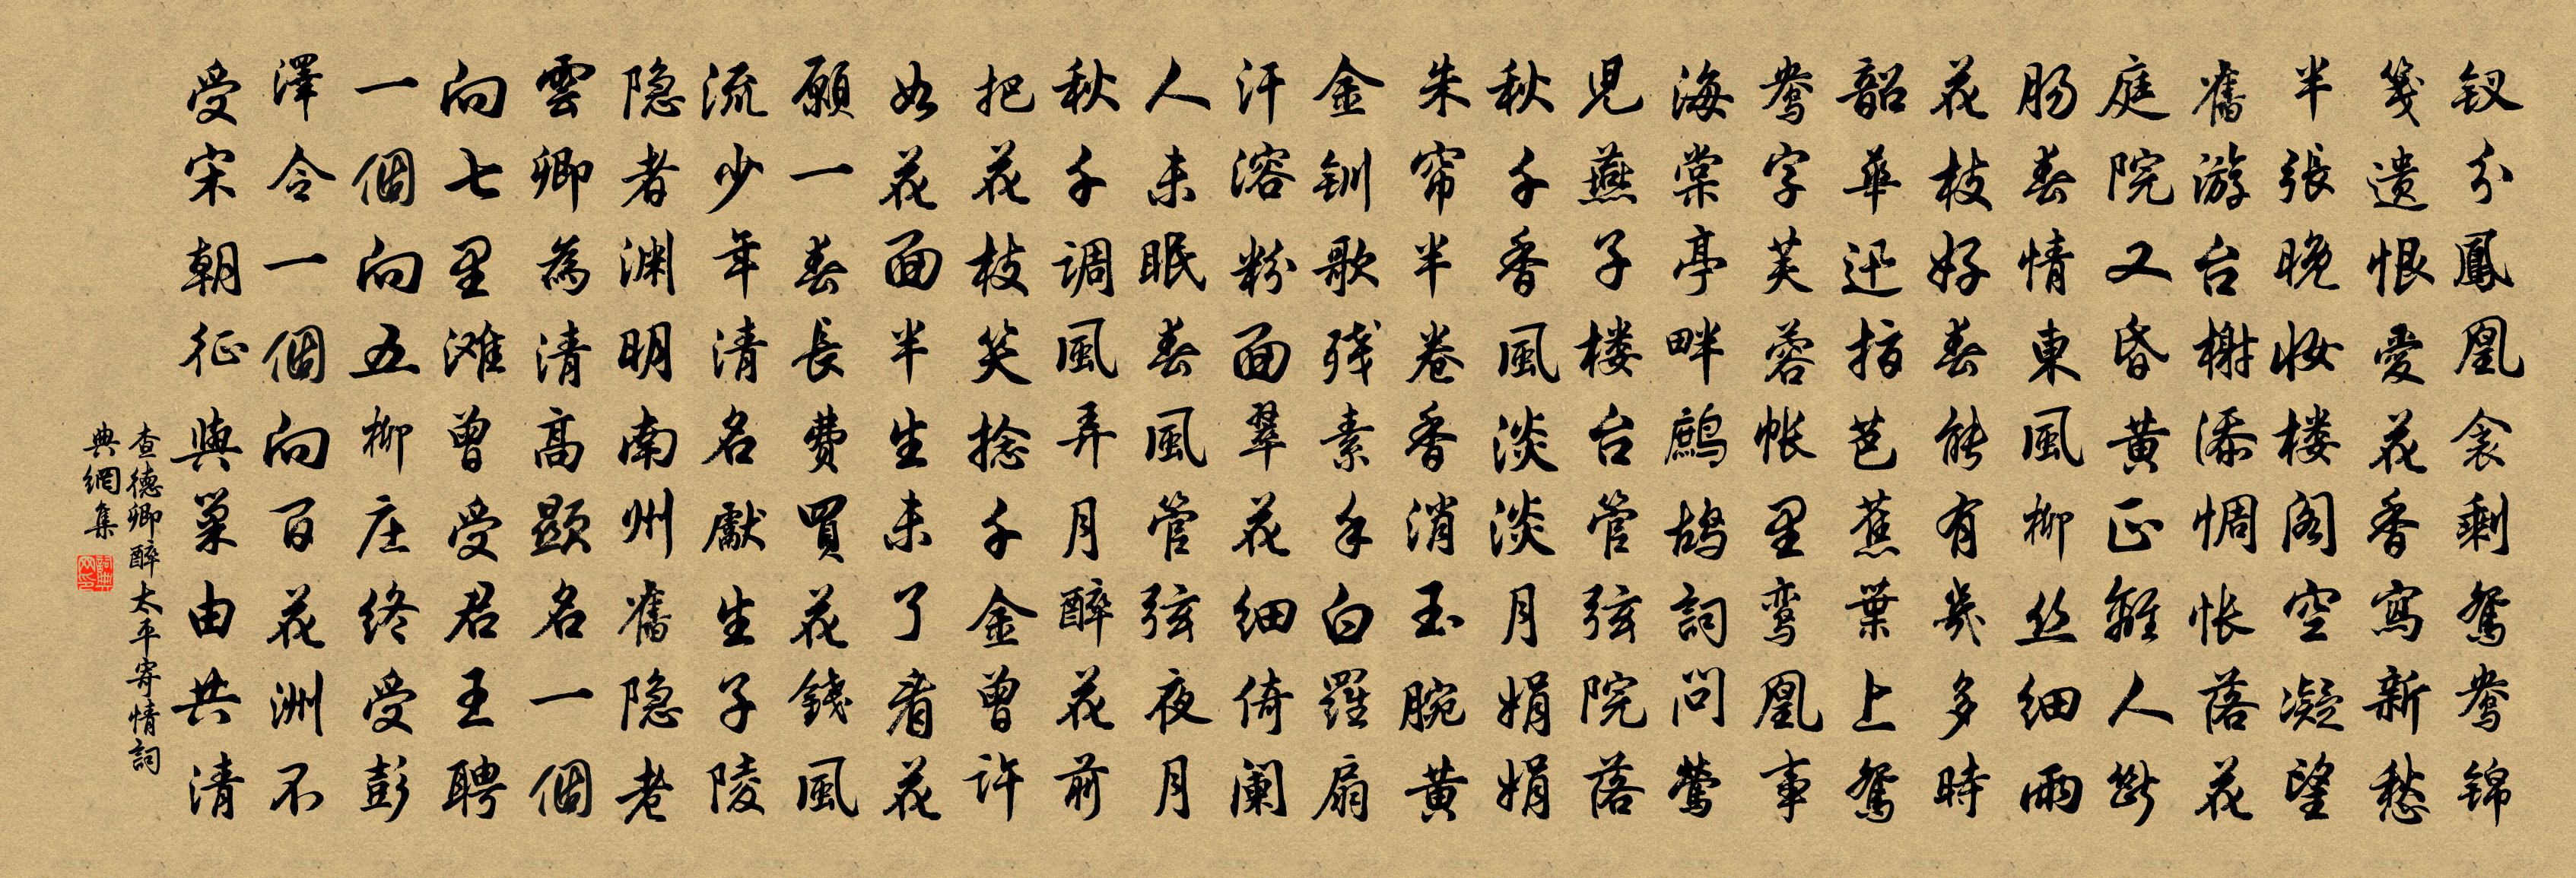 钗分鳳凰衾剩鸳鸯锦
笺遗恨愛花香寫新愁
半張晚妝楼阁空凝望
舊游台榭添惆怅落花
庭院又昏黄正離人断
肠春情東風柳丝细雨
花枝好春能有幾多時
韶華迅指芭蕉葉上鸳
鸯字芙蓉帐里鸾凰事
海棠亭畔鷓鸪詞问莺
児燕子楼台管弦院落
秋千香風淡淡月娟娟
朱帘半卷香消玉腕黄
金钏歌残素手白羅扇
汗溶粉面翠花细倚阑
人未眠春風管弦夜月
秋千调風弄月醉花前
把花枝笑捻千金曾许
如花面半生未了看花
願一春長費買花錢風
流少年清名獻生子陵
隐者渊明南州舊隐老
雲卿為清高顕名一個
向七里滩曾受君王聘
一個向五柳庄终受彭
澤令一個向百花洲不
受宋朝征與巢由共清
查德卿醉太平寄情詞
典網集